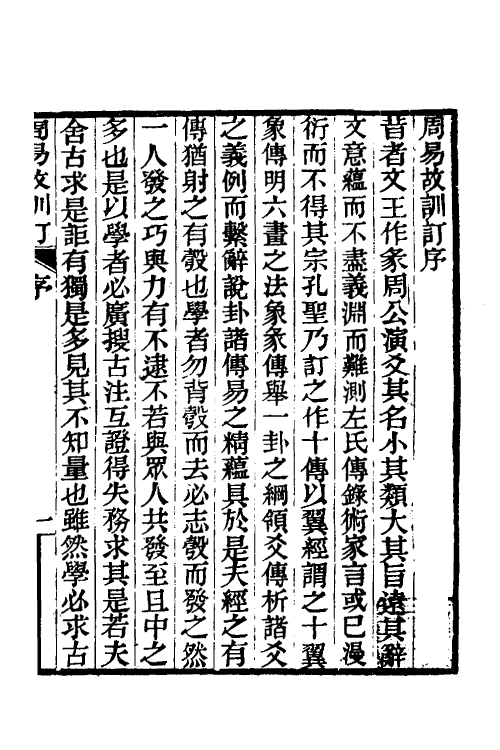 周易故訓訂序
昔者文王作彖周公演爻其名小其類大其旨遠其辭
文意蘊而不盡義淵而難測左氏傳錄術家言或已漫
衍而不得其宗孔聖乃訂之作十傳以翼經謂之十翼
象傳明六畫之法象彖傳舉一卦之綱領爻傳析諸爻
之義例而繫辭說卦諸傳易之精蘊具於是夫經之有
傳猶射之有彀也學者勿背彀而去必志彀而發之然
一人發之巧與力有不逮不若與眾人共發至且中之
多也是以學者必廣搜古注互證得失務求其是若夫
舍古求是詎有獨是多見其不知量也雖然學必求古
周易故訓訂
序
一